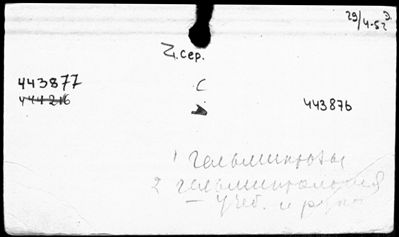 29/4-52
сер.
443877
С
443876
1 гельминтозы
2 гельминтология
– учеб. и рук